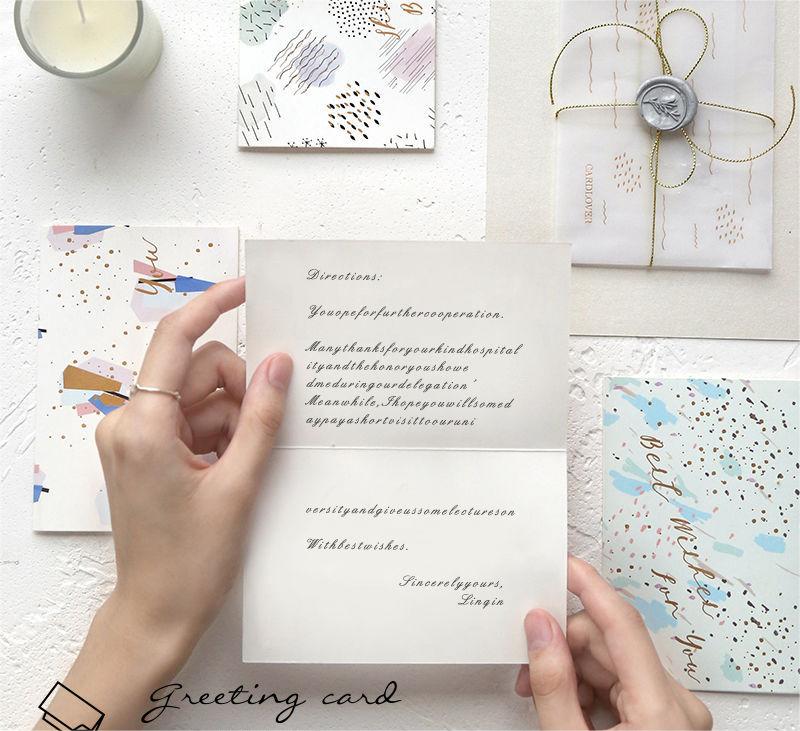 you
CARDLOVER
Directions:
Youopeforfurthercooperation.
Manythanksforyourkindhospital
ityandthehonoryoushowe
dmeduringourdelegation'
Meanwhile,Ihopeyouwillsomed
aypayashortvisittoouruni
versityandgiveussomelectureson
Withbestwishes.
Sincerelyyours,
Lingin
Best Wishes
for You
Greeting card